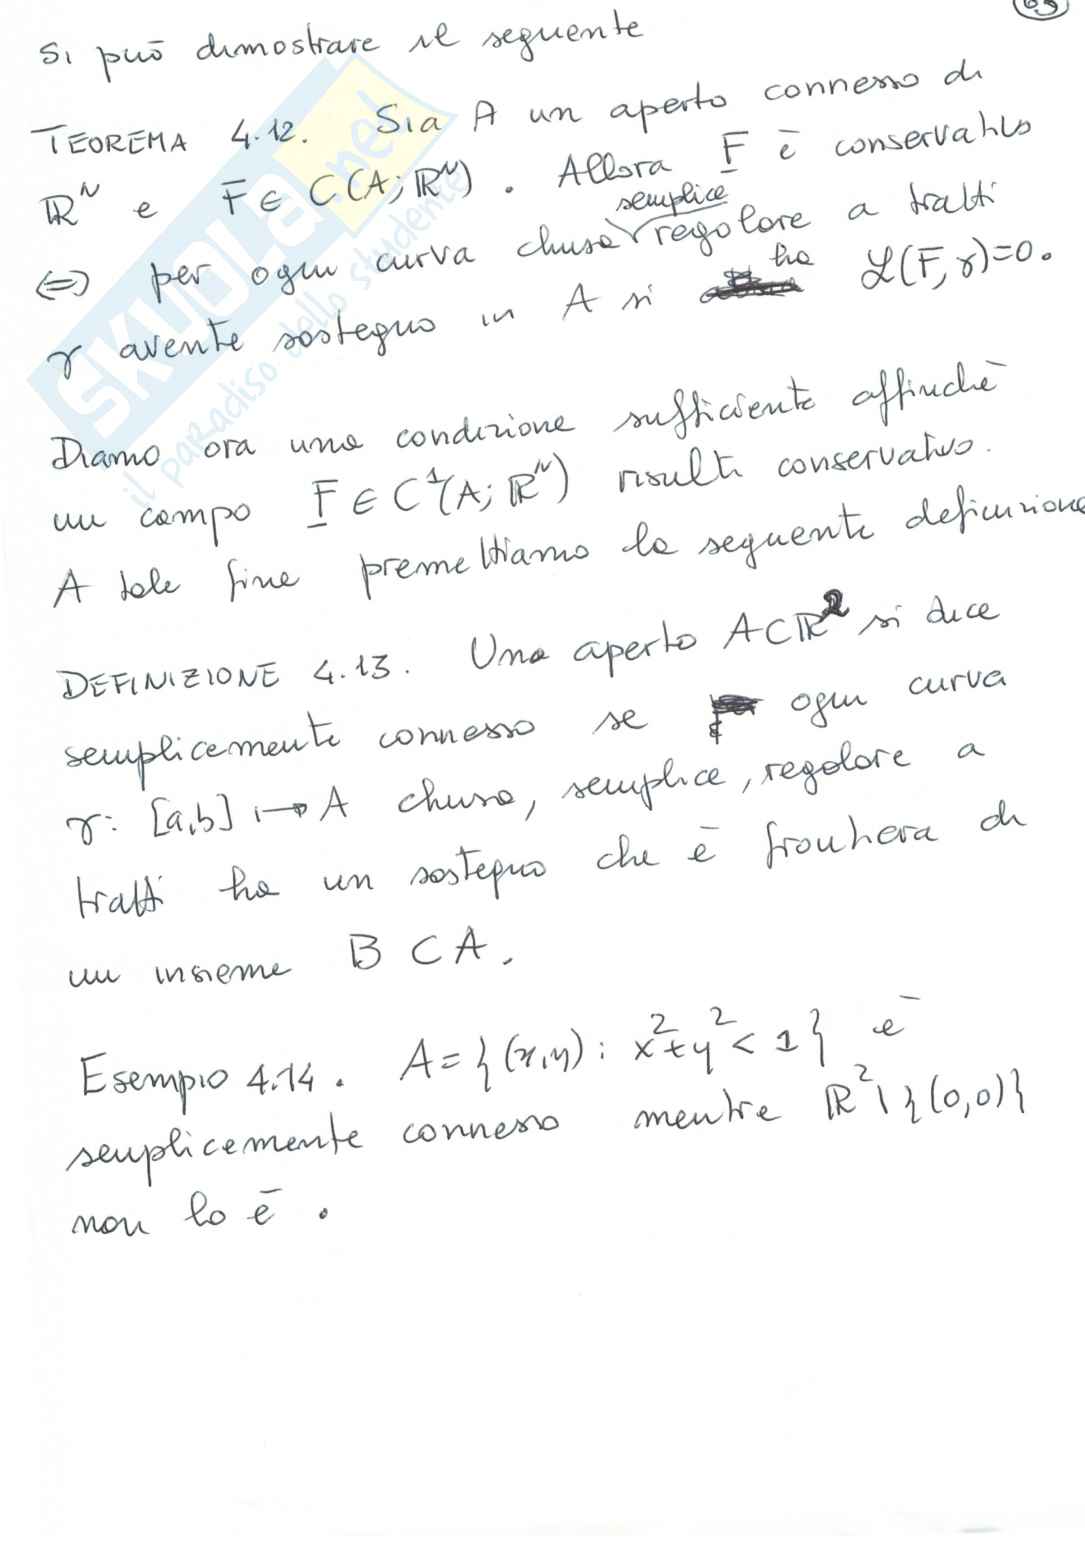 Si può dimostrare il seguente
TEOREMA 4.12. Sia A un aperto connesso di
ℝᴺ e F ∈ C(A; ℝᴺ). Allora F è conservativo
⇔ per ogni curva chiusa semplice regolare a tratti
γ avente sostegno in A si ha ℒ(F, γ)=0.
Diamo ora una condizione sufficiente affinchè
un campo F ∈ C¹(A; ℝᴺ) risulti conservativo.
A tale fine premettiamo la seguente definizione
DEFINIZIONE 4.13. Una aperto A⊂ℝ² si dice
semplicemente connesso se ogni curva
γ: [a,b] ↦ A chiusa, semplice, regolare a
tratti ha un sostegno che è frontiera di
un insieme B ⊂ A.
Esempio 4.14. A = {(x,y): x²+y² < 1} è
semplicemente connesso mentre ℝ² \ {(0,0)}
non lo è.
SKUOLA.net
il paradiso dello studente